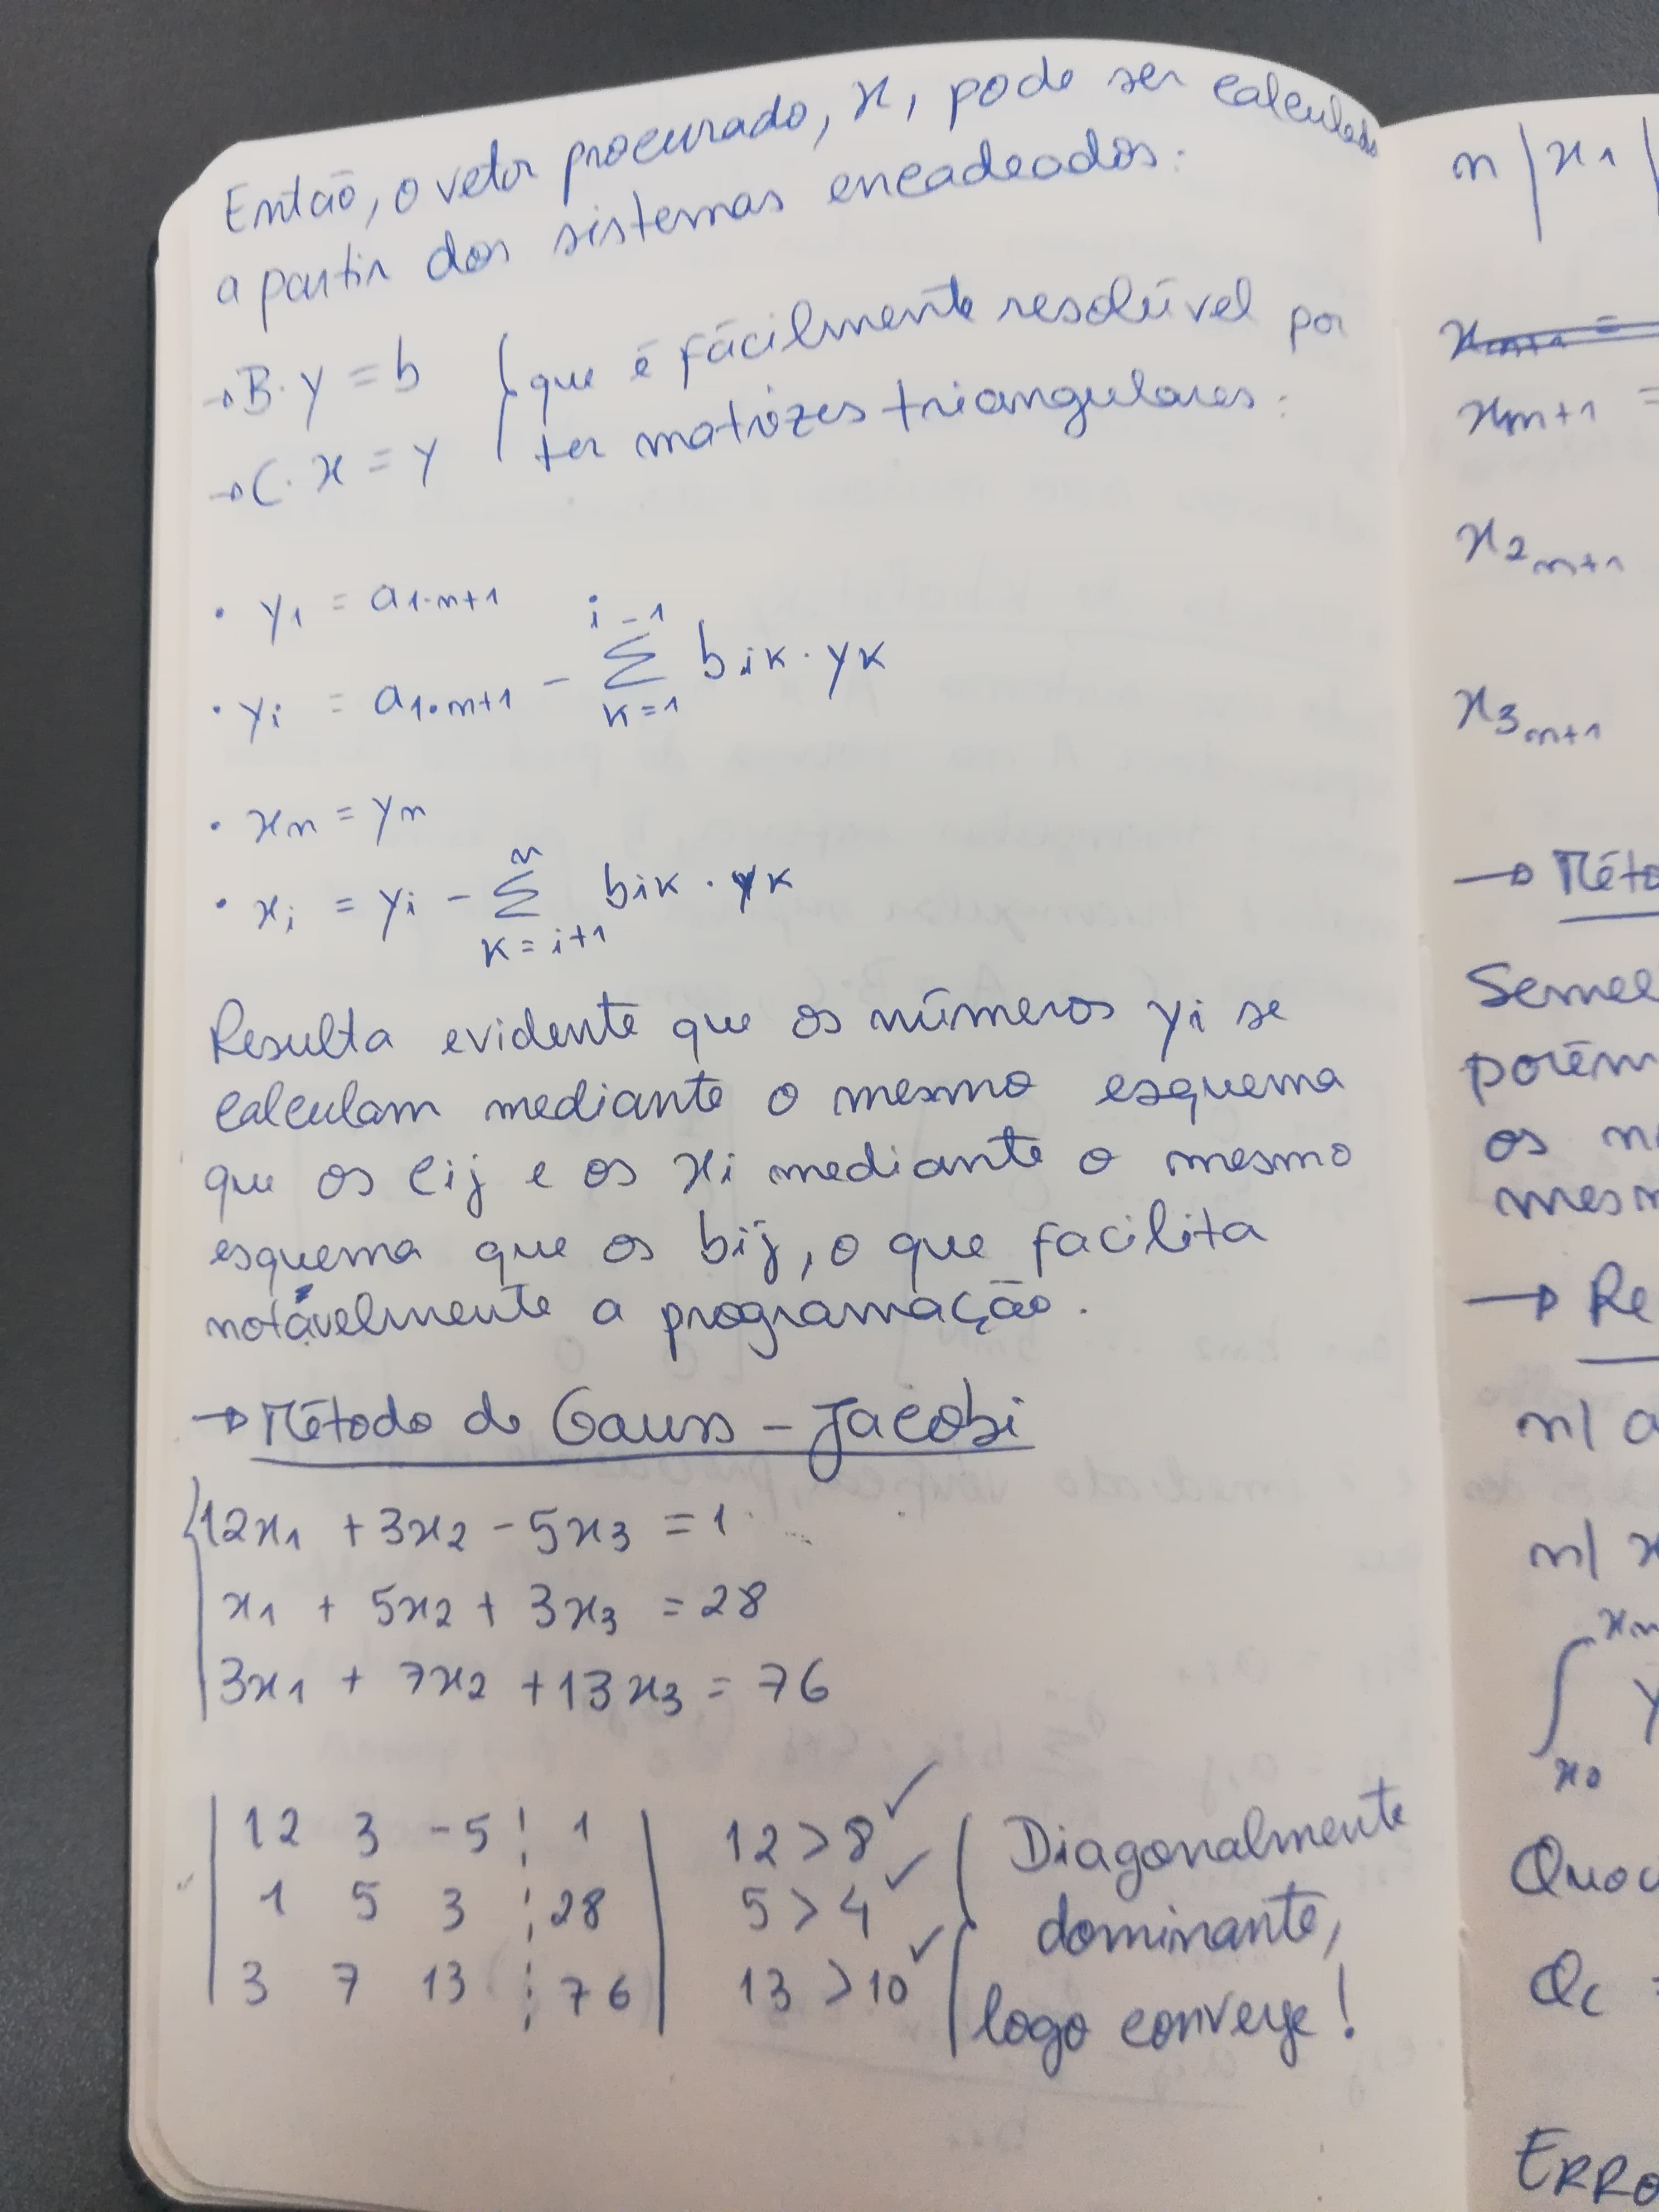 Então, o vetor procurado, x, pode ser calculado
a partir dos sistemas encadeados:
→ B·y = b { que é fácilmente resolúvel por
→ C·x = y ter matrizes triangulares:
· y1 = a1·n+1
· yi = a1·n+1 - Σ k=1 i-1 bik·yk
· xn = yn
· xi = yi - Σ k=i+1 n bik·yk
Resulta evidente que os números yi se
calculam mediante o mesmo esquema
que os cij e os xi mediante o mesmo
esquema que os bij, o que facilita
notávelmente a programação.
→ Método de Gauss - Jacobi
{ 12x1 + 3x2 - 5x3 = 1
x1 + 5x2 + 3x3 = 28
3x1 + 7x2 + 13x3 = 76
| 12 3 -5 ¦ 1 | 12 > 8 ✓ { Diagonalmente
1 5 3 ¦ 28 5 > 4 ✓ dominante,
3 7 13 ¦ 76 | 13 > 10 ✓ logo converge!
n | x1 |
xn+1 =
x2n+1
x3n+1
→ Méto
Semel
porém
os
mesm
→ Re
n|
n| x
∫ x0 xn y
Qc =
ERRO